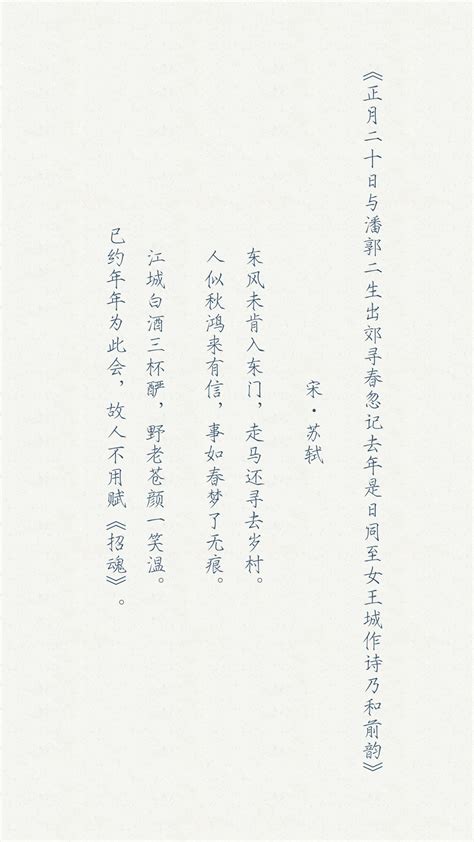 《正月二十日与潘郭二生出郊寻春忽记去年是日同至女王城作诗乃和前韵》
宋·苏轼
东风未肯入东门，走马还寻去岁村。
人似秋鸿来有信，事如春梦了无痕。
江城白酒三杯酽，野老苍颜一笑温。
已约年年为此会，故人不用赋《招魂》。